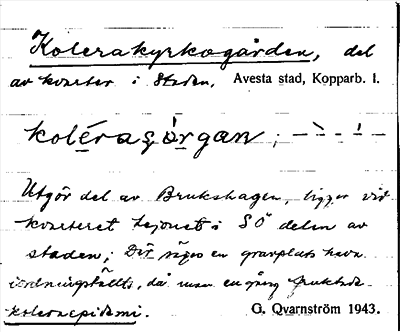 Kolerakyrkogården, del
av kvarter i staden, Avesta stad, Kopparb. l.
koléragȧrgan, – ` – ' –
Utgör del av Brukshagen, ligger vid
kvarteret Lejonet i SÖ delen av
staden; Där säges en gravplats hava
iordningställts, då man en gång fruktade
koleraepidemi. G. Qvarnström 1943.